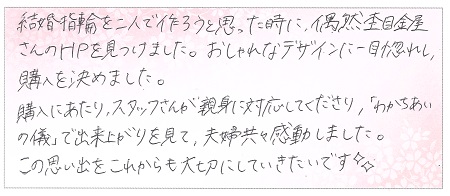 結婚指輪を二人で作ろうと思った時に、偶然杢目金屋
さんのHPを見つけました。おしゃれなデザインに一目惚れし、
購入を決めました。
購入にあたり、スタッフさんが親身に対応してくださり、「わかちあい
の儀」で出来上がりを見て、夫婦共々感動しました。
この思い出をこれからも大切にしていきたいです☆☆